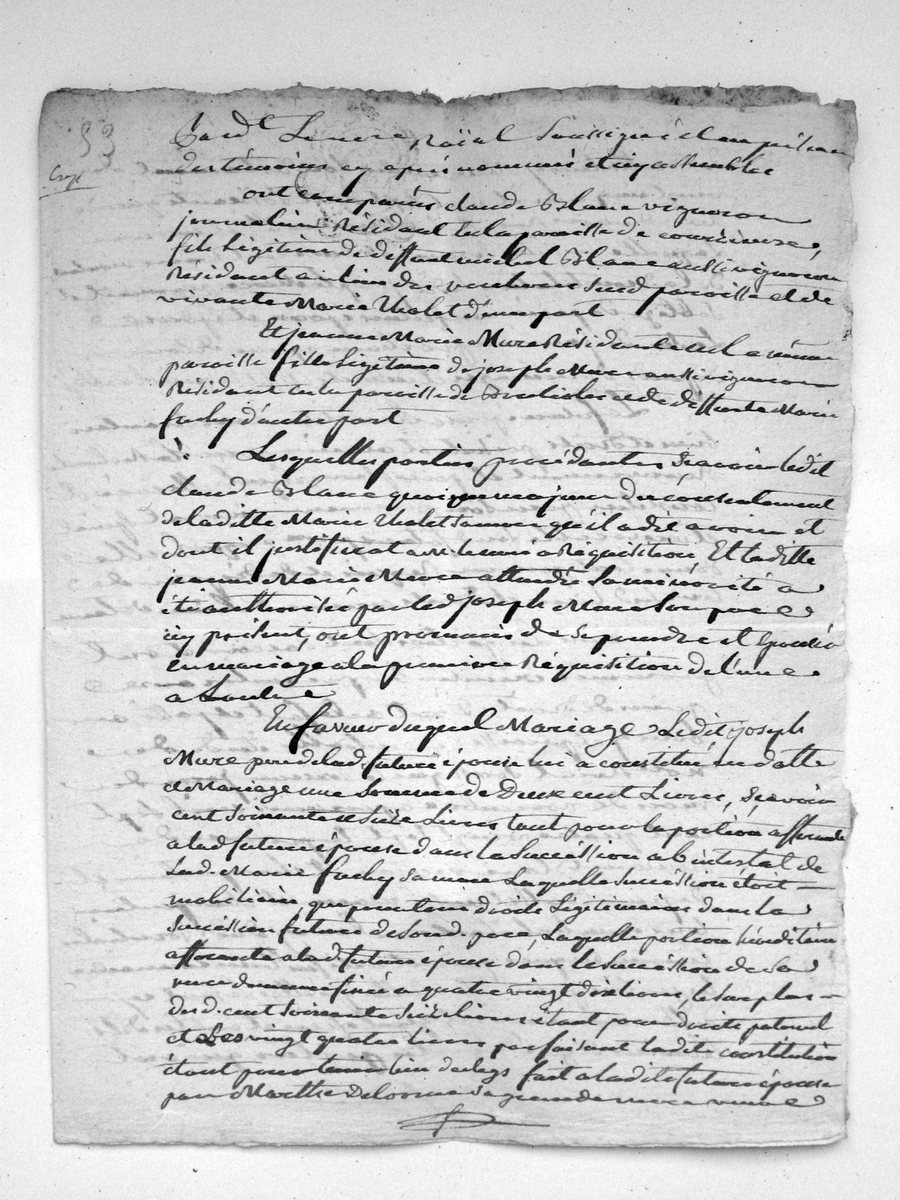 53
Par d^t Le no^re Roïal Soussigné et en présence
des témoins cy après nommés et icy assemblés
ont comparûs claude Blanc vigneron
journalier Résidant en la paroisse de courzieux,
fils Légitime de deffunt michel Blanc aussi vigneron
Résidant au lieu des sus d. paroisse et de
vivante Marie Tholet d'une part
Et jeanne Marie Mure Résidante en la même
paroisse fille Légitime de joseph Mure aussi vigneron
Résidant en la paroisse de Brulioles et de deffunte Marie
fachy d'autre part
Lesquelles parties procédantes Scavoir ledit
claude Blanc quoique majeur du consentement
de laditte Marie Tholet sa mere qu'il a dit avoir et
dont il justifierat a la Réquisition Et laditte
jeanne Marie Mure attendûe Sa minorité a
été authorisée par led joseph Mure Son pere
icy présent, ont promis de Se prendre et Epouser
en mariage a la premiere Réquisition de l'une
a Lautre
En faveur duquel Mariage Ledit joseph
Mure pere de lad. future épouse luy a constitué en dotte
de Mariage une Somme de Deux cent Livres, Scavoir
cent Soixante et Seize Livres tant pour la portion afferante
a lad future épouse dans la Succéssion ab intestat de
Lad. Marie fachy sa mere Laquelle Succéssion étoit
mobiliaire que pour tenir droits Légitimaires dans la
Succession future de Sond. pere, Laquelle portion héréditaire
afferante a lad. future épouse dans la Succéssion de Sa
mere demeure fixée a quatre vingt dix livres, le Surplus
des d. cent Soixante Seize livres étant pour droits paternel
et Les vingt quatre livres parfaisant ladite constitution
étant pour tenir lieu du legs fait a ladite future épouse
par Marthe Delorme Sa grande mere veuve